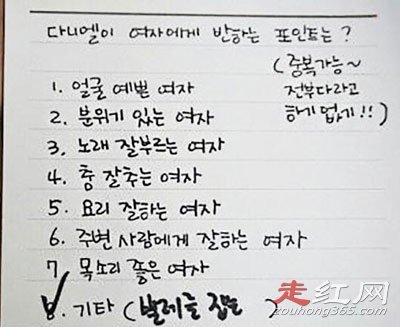 다니엘이 여자에게 반하는 포인트는?
(중복가능~
전부다라고
하기 없기!!)
1. 얼굴 예쁜 여자
2. 분위기 있는 여자
3. 노래 잘부르는 여자
4. 춤 잘추는 여자
5. 요리 잘하는 여자
6. 주변 사람에게 잘하는 여자
7. 목소리 좋은 여자
8. 기타 (벌레를 잡는 )
走红网
zouhong365.com